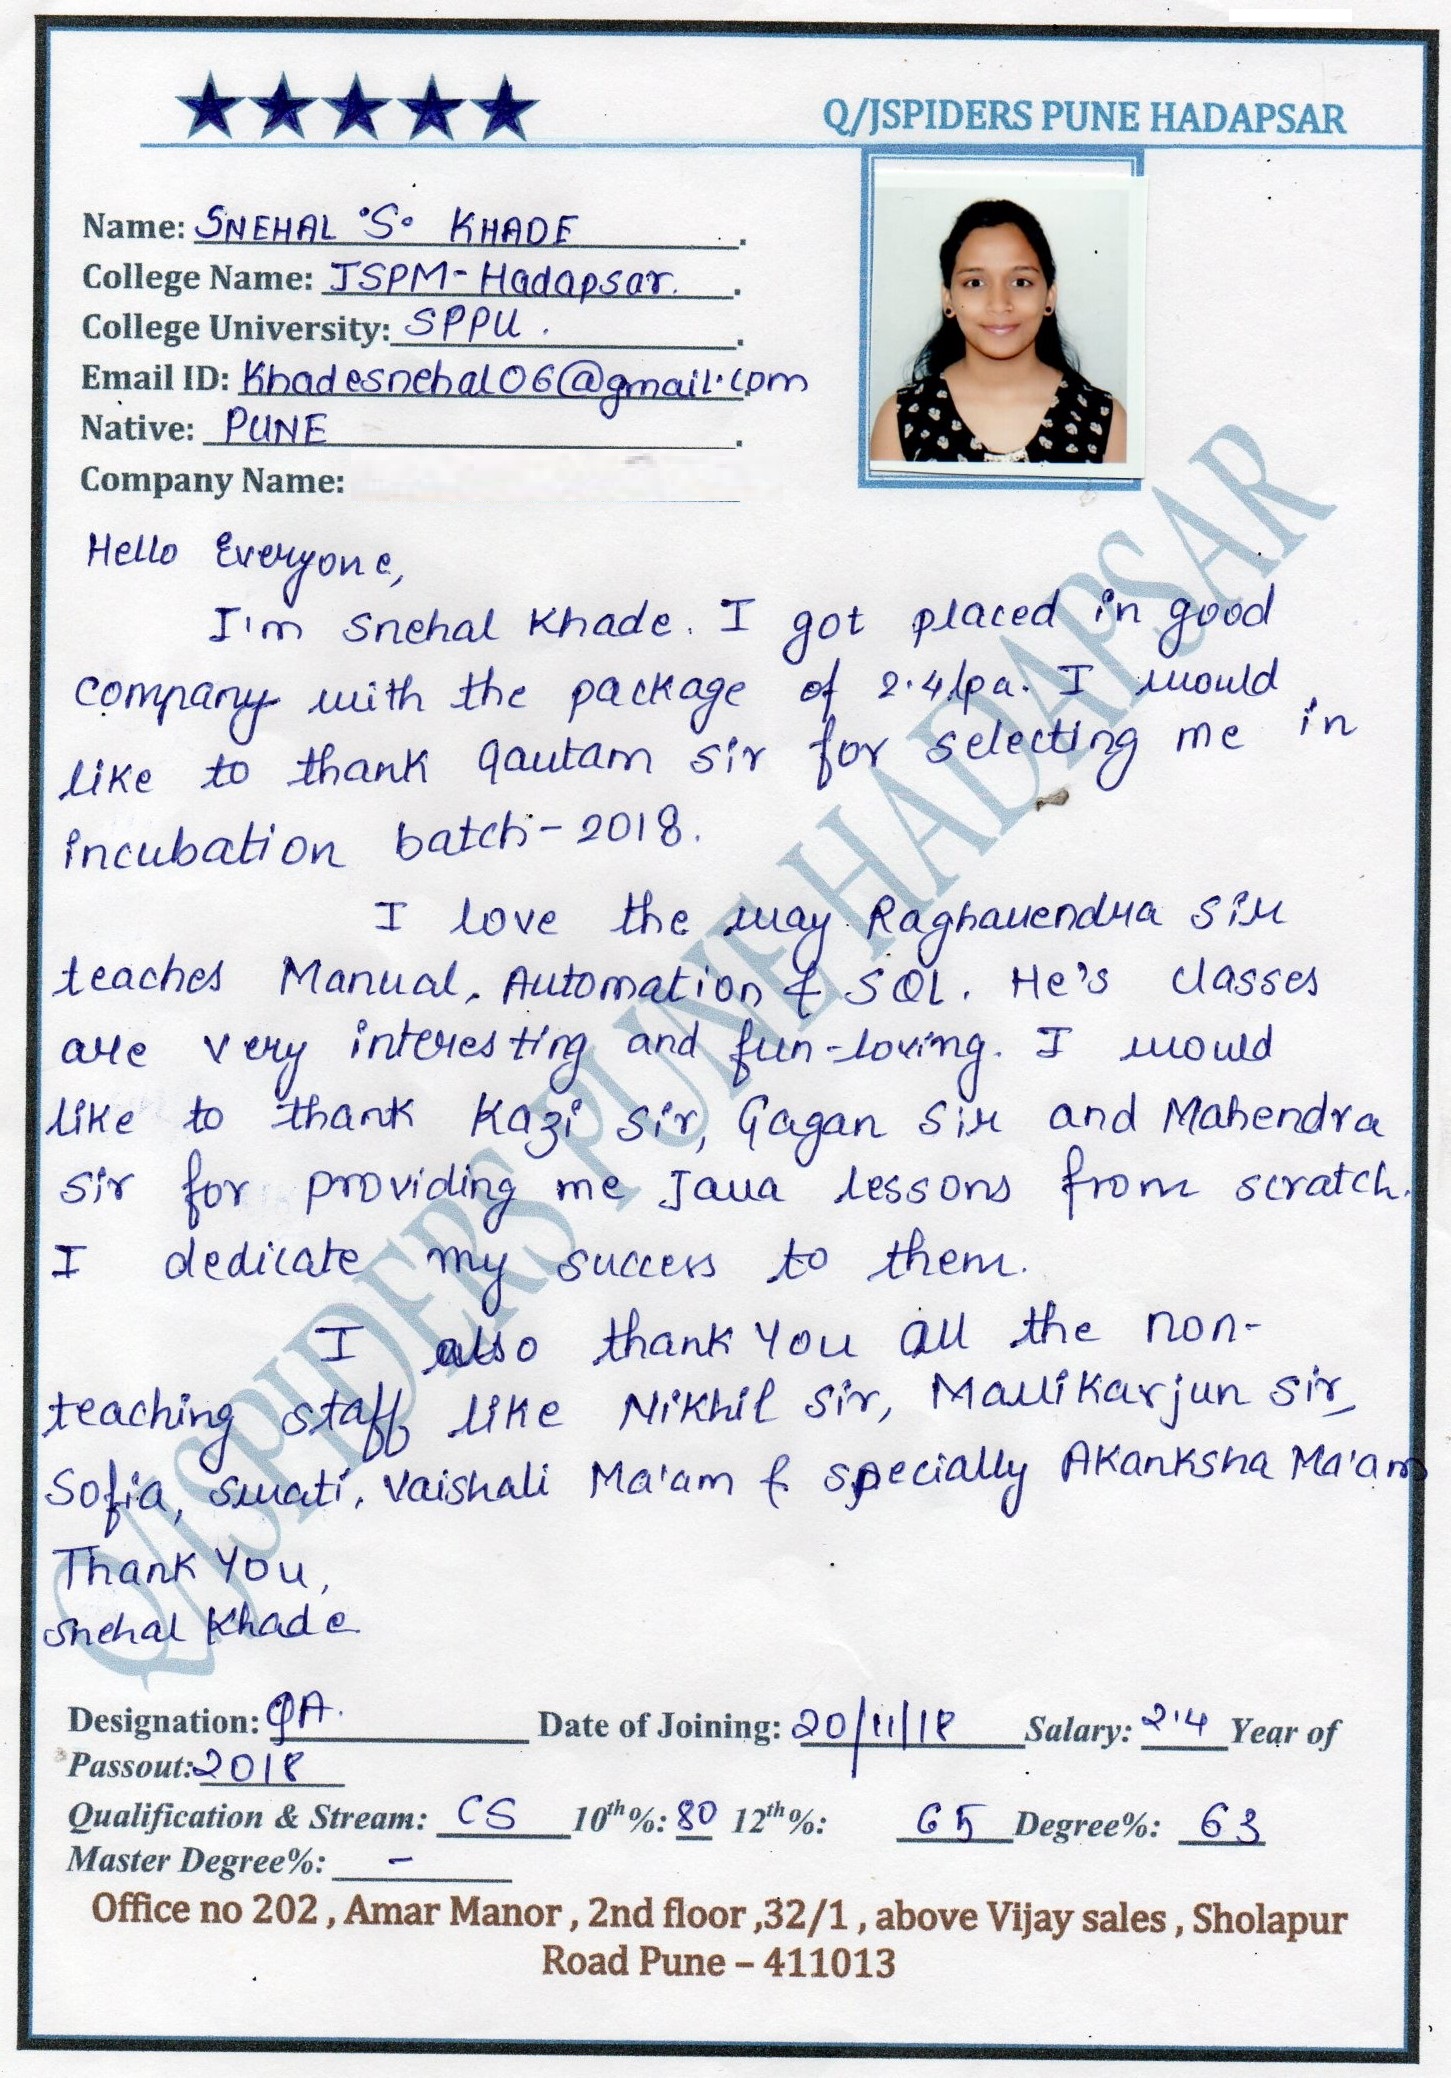 Q/JSPIDERS PUNE HADAPSAR
Name: SNEHAL S. KHADE.
College Name: JSPM-Hadapsar.
College University: SPPU.
Email ID: Khadesnehal06@gmail.com
Native: PUNE.
Company Name:
Hello Everyone,
I'm Snehal Khade. I got placed in good
company with the package of 2.4lpa. I would
like to thank Gautam sir for selecting me in
incubation batch-2018.
I love the way Raghavendra Sir
teaches Manual, Automation & SQL. He's classes
are very interesting and fun-loving. I would
like to thank Kazi sir, Gagan Sir and Mahendra
sir for providing me Java lessons from scratch.
I dedicate my success to them.
I also thank You all the non-
teaching staff like Nikhil Sir, Mallikarjun Sir,
Sofia, Swati, Vaishali Ma'am & specially Akanksha Ma'am
Thank You,
Snehal Khade
Designation: QA. Date of Joining: 20/11/18 Salary: 2.4 Year of
Passout: 2018
Qualification & Stream: CS 10th%: 80 12th%: 65 Degree%: 63
Master Degree%: -
Office no 202 , Amar Manor , 2nd floor ,32/1 , above Vijay sales , Sholapur
Road Pune – 411013
Q/JSPIDERS PUNE HADAPSAR